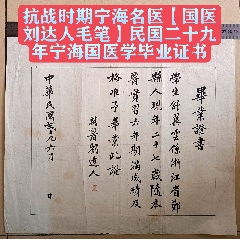 抗战时期宁海名医【国医
刘达人毛笔】民国二十九
年宁海国医学毕业证书
畢業證書
學生舒蕙雲係浙江省鄞
縣人現年二十七歲隨本
醫實習六年期滿成績及
格准予畢業此證
中華民國
年六月
日